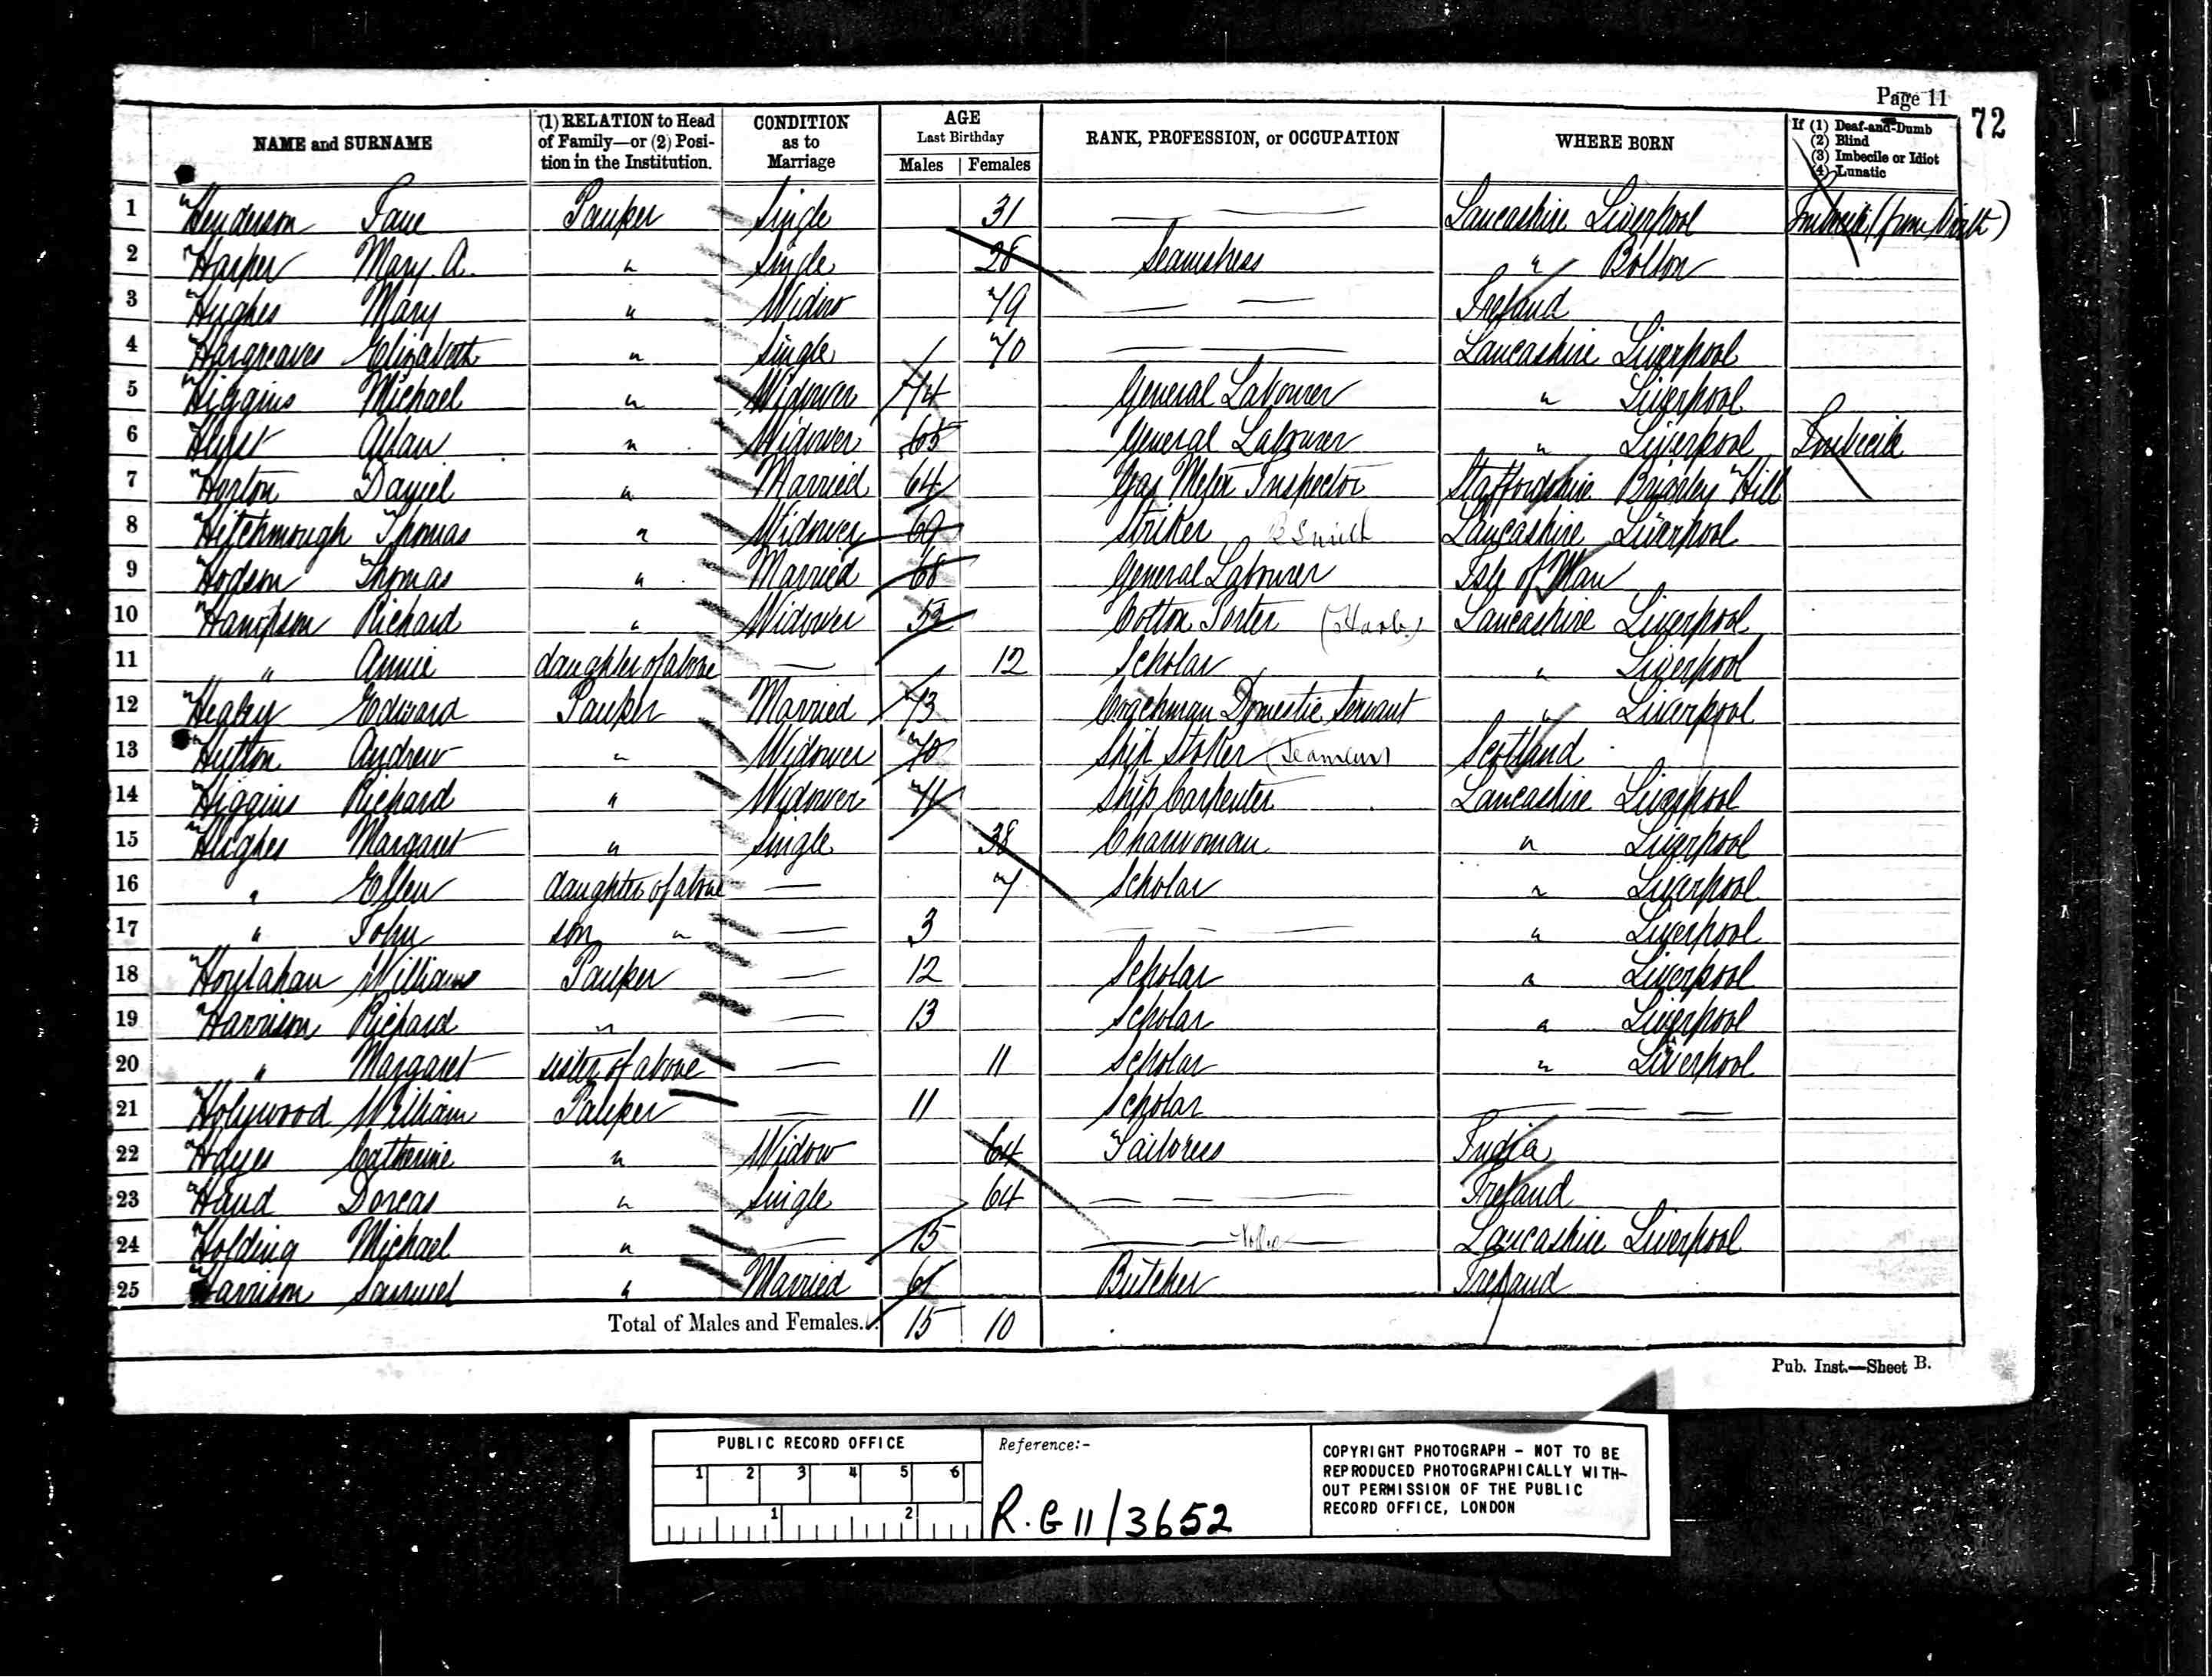 Page 11
72
NAME and SURNAME (1) RELATION to Head of Family—or (2) Position in the Institution. CONDITION as to Marriage AGE Last Birthday Males Females RANK, PROFESSION, or OCCUPATION WHERE BORN If (1) Deaf-and-Dumb (2) Blind (3) Imbecile or Idiot (4) Lunatic
1 Henderson Jane Pauper Single 31 — — Lancashire Liverpool Imbecile (from birth)
2 Harper Mary A. " Single 28 Seamstress " Bolton
3 Hughes Mary " Widow 79 — — Ireland
4 Hargreaves Elizabeth " Single 70 — — Lancashire Liverpool
5 Higgins Michael " Widower 74 General Labourer " Liverpool
6 Hurst Allan " Widower 65 General Labourer " Liverpool Imbecile
7 Horton Daniel " Married 64 Gas Meter Inspector Staffordshire Brierley Hill
8 Hitchmough Thomas " Widower 69 Striker B Smith Lancashire Liverpool
9 Hodson Thomas " Married 68 General Labourer Isle of Man
10 Hampson Richard " Widower 53 Cotton Porter Lancashire Liverpool
11 " Annie daughter of above — 12 Scholar " Liverpool
12 Healey Edward Pauper Married 73 Coachman Domestic Servant " Liverpool
13 Hutton Andrew " Widower 70 Ship Stoker (Seaman) Scotland
14 Higgins Richard " Widower 71 Ship Carpenter Lancashire Liverpool
15 Hughes Margaret " Single 38 Charwoman " Liverpool
16 " Ellen daughter of above — 7 Scholar " Liverpool
17 " John son " — 3 — — — " Liverpool
18 Houlahan William Pauper — 12 Scholar " Liverpool
19 Harrison Richard " — 13 Scholar " Liverpool
20 " Margaret sister of above — 11 Scholar " Liverpool
21 Holywood William Pauper — 11 Scholar — — —
22 Hayes Catherine " Widow 64 Tailoress India
23 Hand Dorcas " Single 64 — — — Ireland
24 Holding Michael " — 15 — — Lancashire Liverpool
25 Harrison Samuel " Married 61 Butcher Ireland
Total of Males and Females... 15 10
Pub. Inst.—Sheet B.
PUBLIC RECORD OFFICE
1 2 3 4 5 6
1 2
Reference:-
R.G 11/3652
COPYRIGHT PHOTOGRAPH - NOT TO BE
REPRODUCED PHOTOGRAPHICALLY WITH-
OUT PERMISSION OF THE PUBLIC
RECORD OFFICE, LONDON